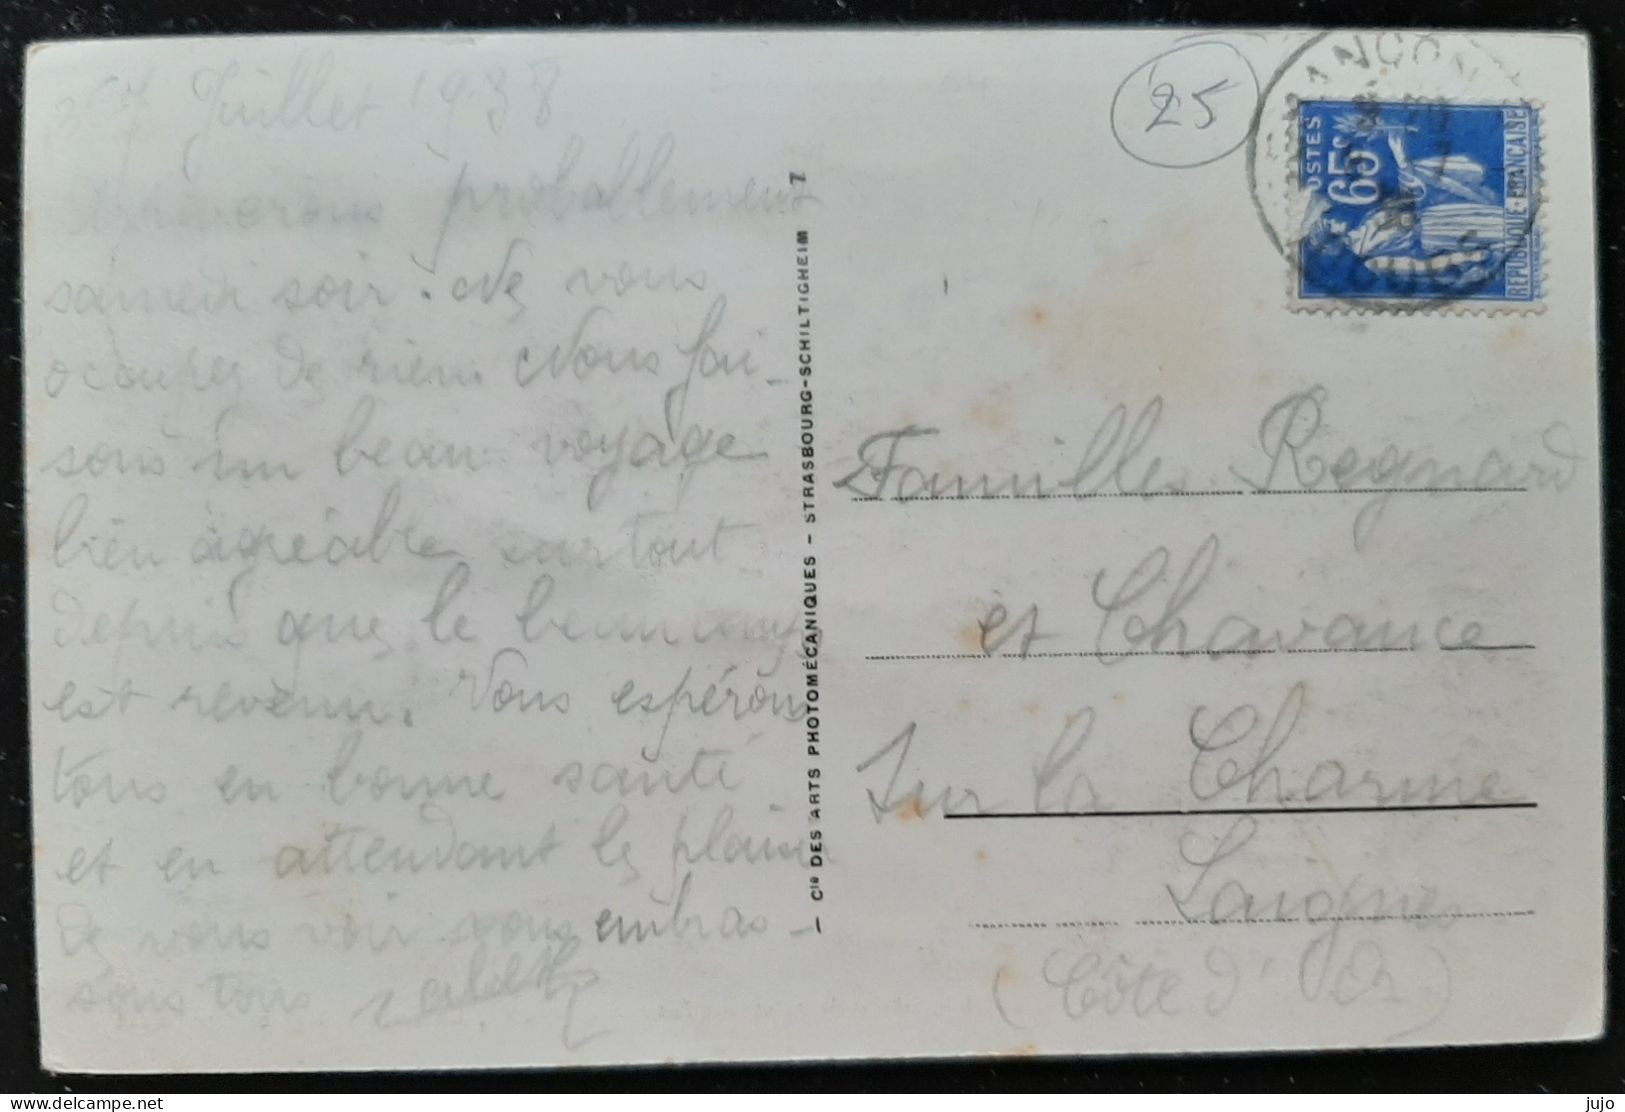 Juillet 1938
arriverons proballement
samedi soir. Ne vous
occupez de rien. Nous fai-
sons un beau voyage
bien agréable surtout
depuis que le beau temps
est revenu. Vous espérons
tous en bonne santé
et en attendant le plaisir
de vous voir vous embras-
sons tous
— Cie DES ARTS PHOTOMÉCANIQUES — STRASBOURG-SCHILTIGHEIM 7
25
POSTES
65c
RF
REPUBLIQUE·FRANÇAISE
ANÇON
DOUBS
Familles Regnard
et Chavance
Sur la Charme
Laignes
(Côte d'Or)
delcampe.net
jujo